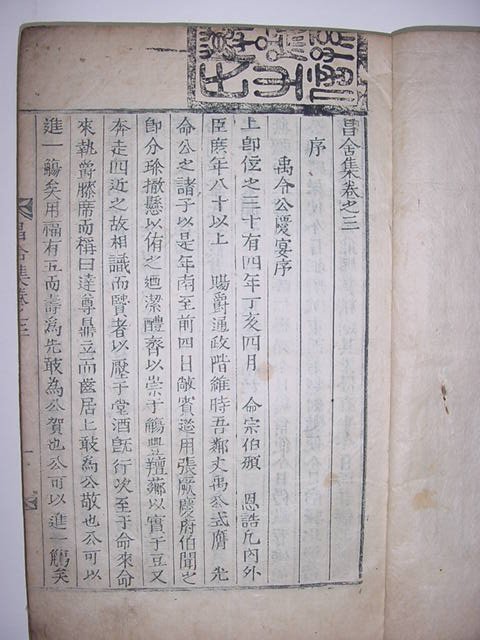 昌舍集卷之三
序
禹令公慶宴序
上卽位之三十有四年丁亥四月 命宗伯頒 恩誥凡內外
臣庶年八十以上 賜爵通政階維時吾鄰丈禹公式膺 光
命公之諸子以是年南至前四日敞賓筵用張厥慶府伯聞之
卽分瑔撤懸以侑之廼潔醴齊以崇于觴豐羶薌以實于豆又
奔走四近之故相識而賢者以壓于堂酒旣行次至于命來命
來執爵滕席而稱曰達尊鼎立而齒居上敢為公敬也公可以
進一觴矣用福有五而壽為先敢為公賀也公可以進一觴矣
昌舍集卷之三
一